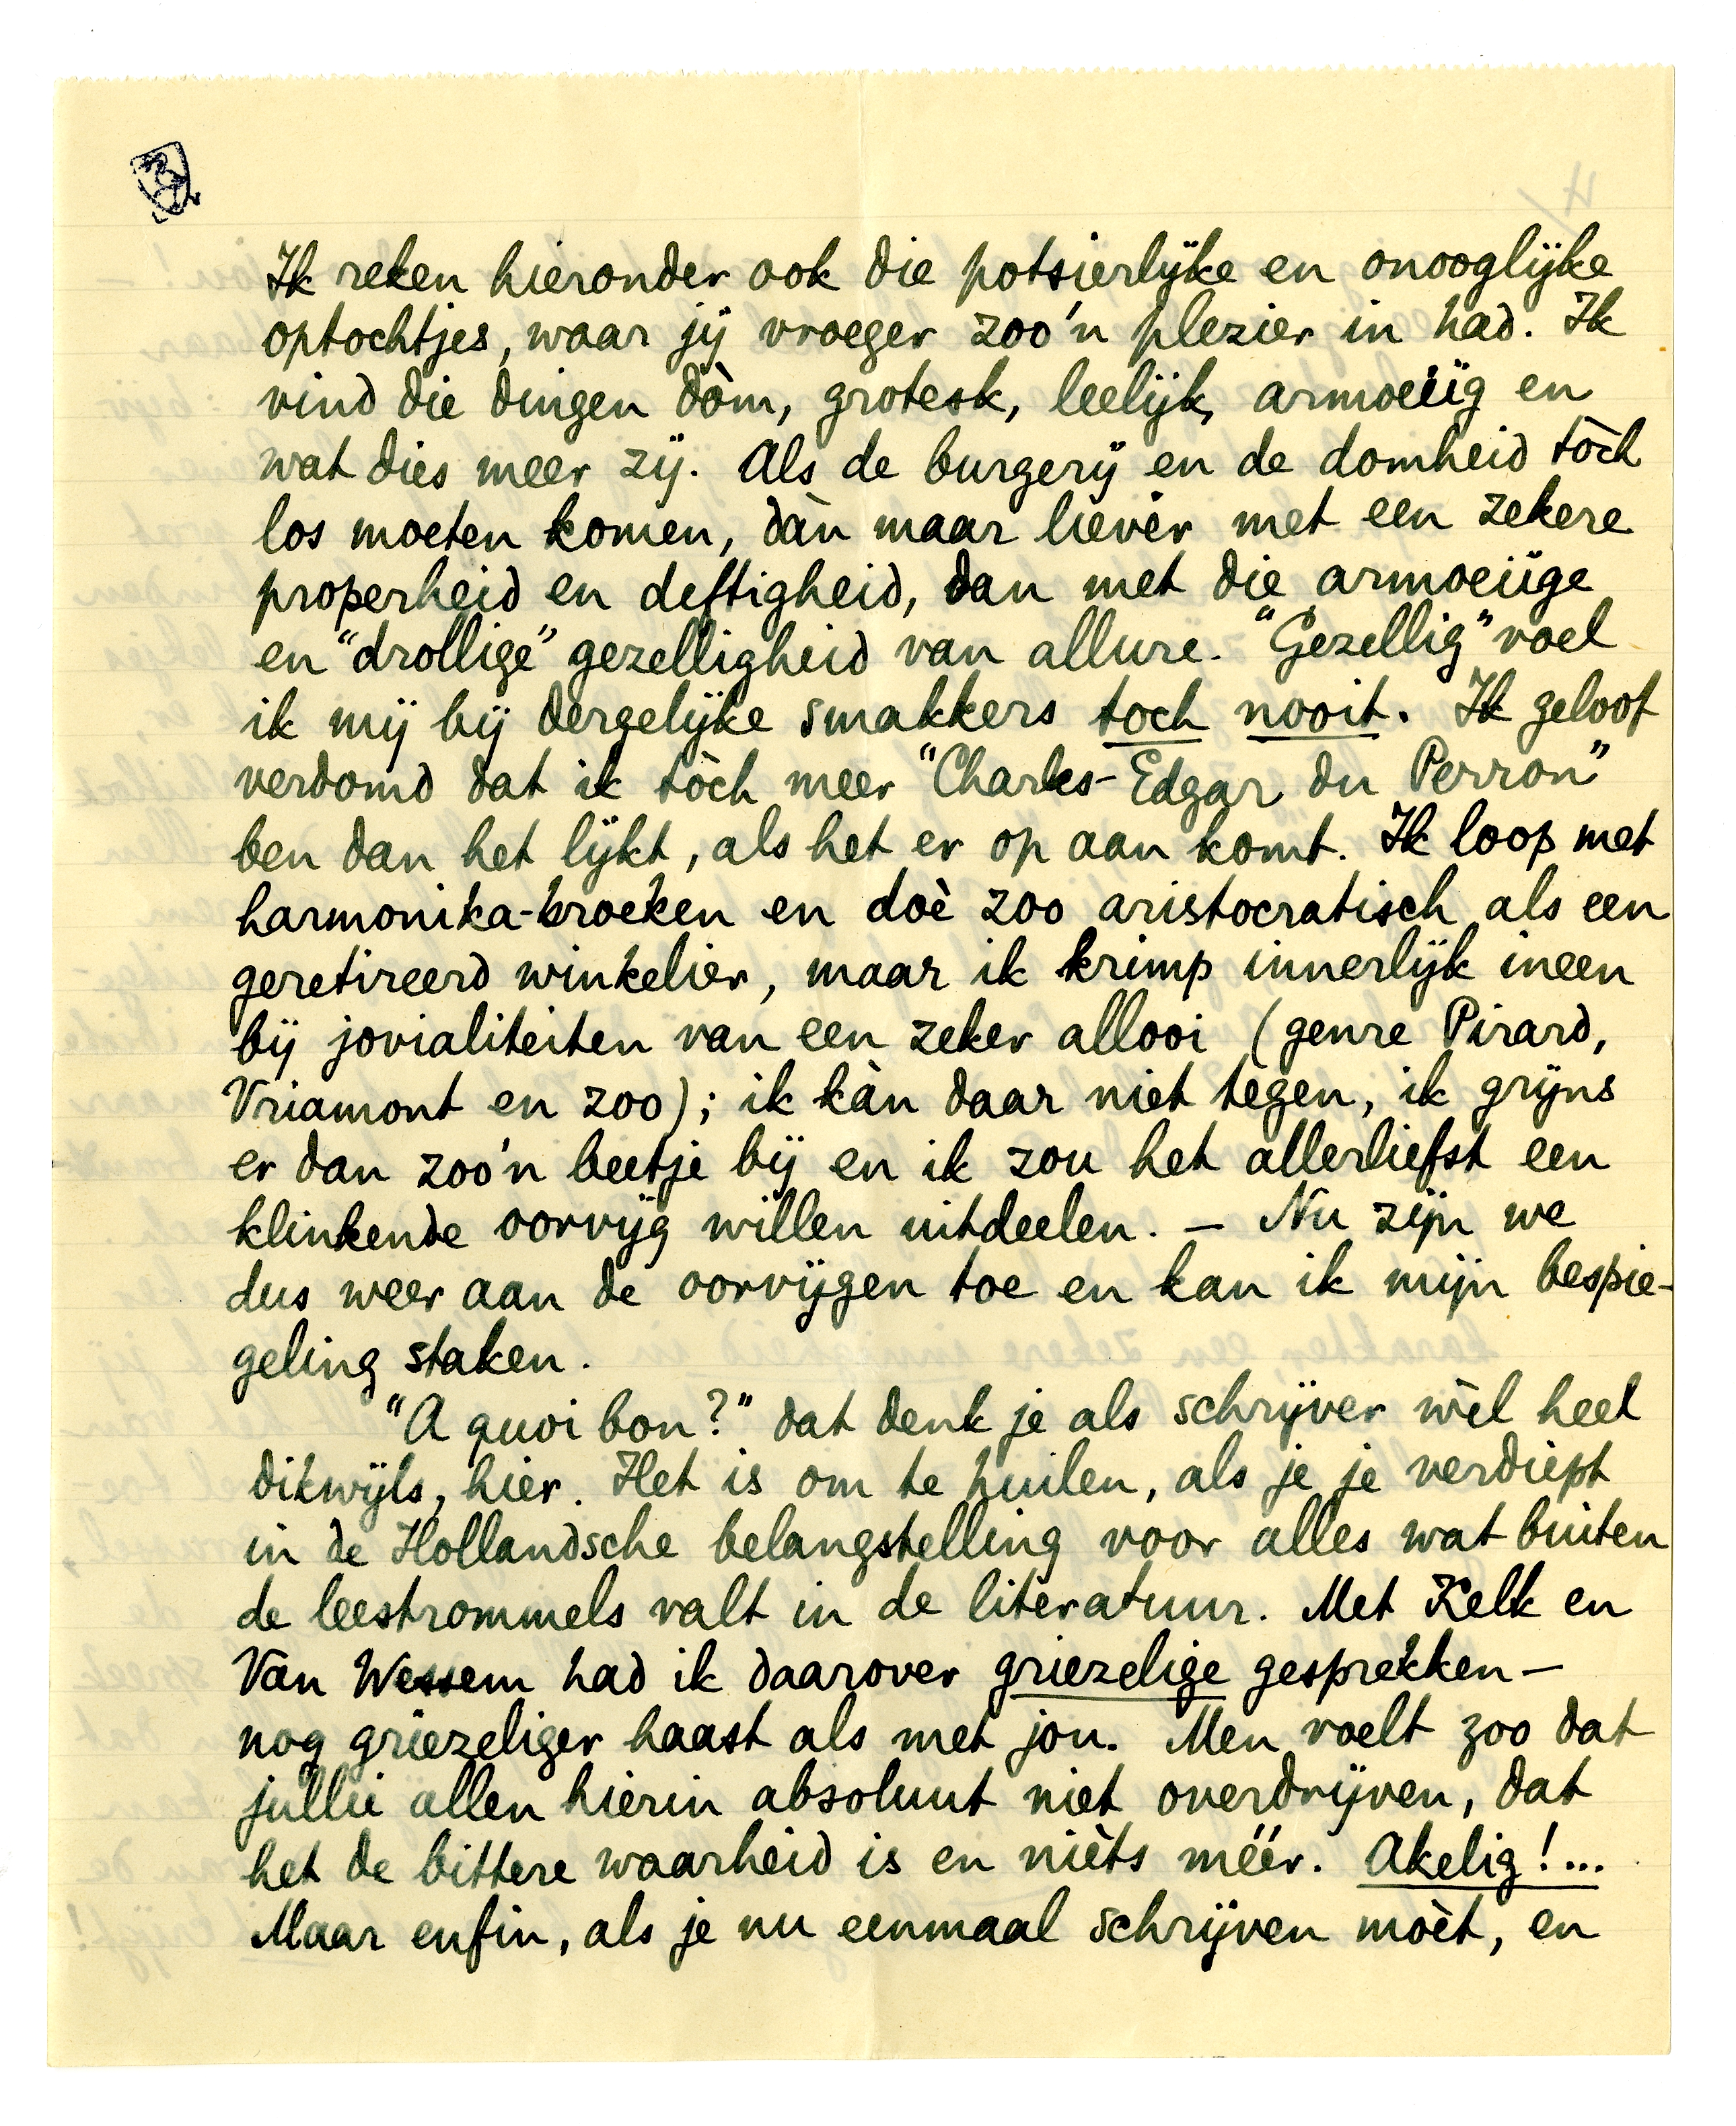 Ik reken hieronder ook die potsierlijke en onooglijke
optochtjes, waar jij vroeger zoo'n plezier in had. Ik
vind die dingen dòm, grotesk, leelijk, armoeiïg en
wat dies meer zij. Als de burgerij en de domheid tòch
los moeten komen, dàn maar liever met een zekere
properheid en deftigheid, dan met die armoeiïge
en "drollige" gezelligheid van allure. "Gezellig" voel
ik mij bij dergelijke smakkers toch nooit. Ik geloof
verdomd dat ik tòch meer "Charles-Edgar du Perron"
ben dan het lijkt, als het er op aan komt. Ik loop met
harmonika-broeken en doè zoo aristocratisch als een
geretireerd winkelier, maar ik krimp innerlijk ineen
bij jovialiteiten van een zeker allooi (genre Pirard,
Vriamont en zoo); ik kàn daar niet tegen, ik grijns
er dan zoo'n beetje bij en ik zou het allerliefst een
klinkende oorvijg willen uitdeelen. — Nu zijn we
dus weer aan de oorvijgen toe en kan ik mijn bespie-
geling staken.
"A quoi bon?" dat denk je als schrijver wèl heel
dikwijls, hier. Het is om te huilen, als je je verdiept
in de Hollandsche belangstelling voor alles wat buiten
de leestrommels valt in de literatuur. Met Kelk en
Van Wessem had ik daarover griezelige gesprekken —
nog griezeliger haast als met jou. Men voelt zoo dat
jullie allen hierin absoluut niet overdrijven, dat
het de bittere waarheid is en nièts méér. Akelig!...
Maar enfin, als je nu eenmaal schrijven mòèt, en